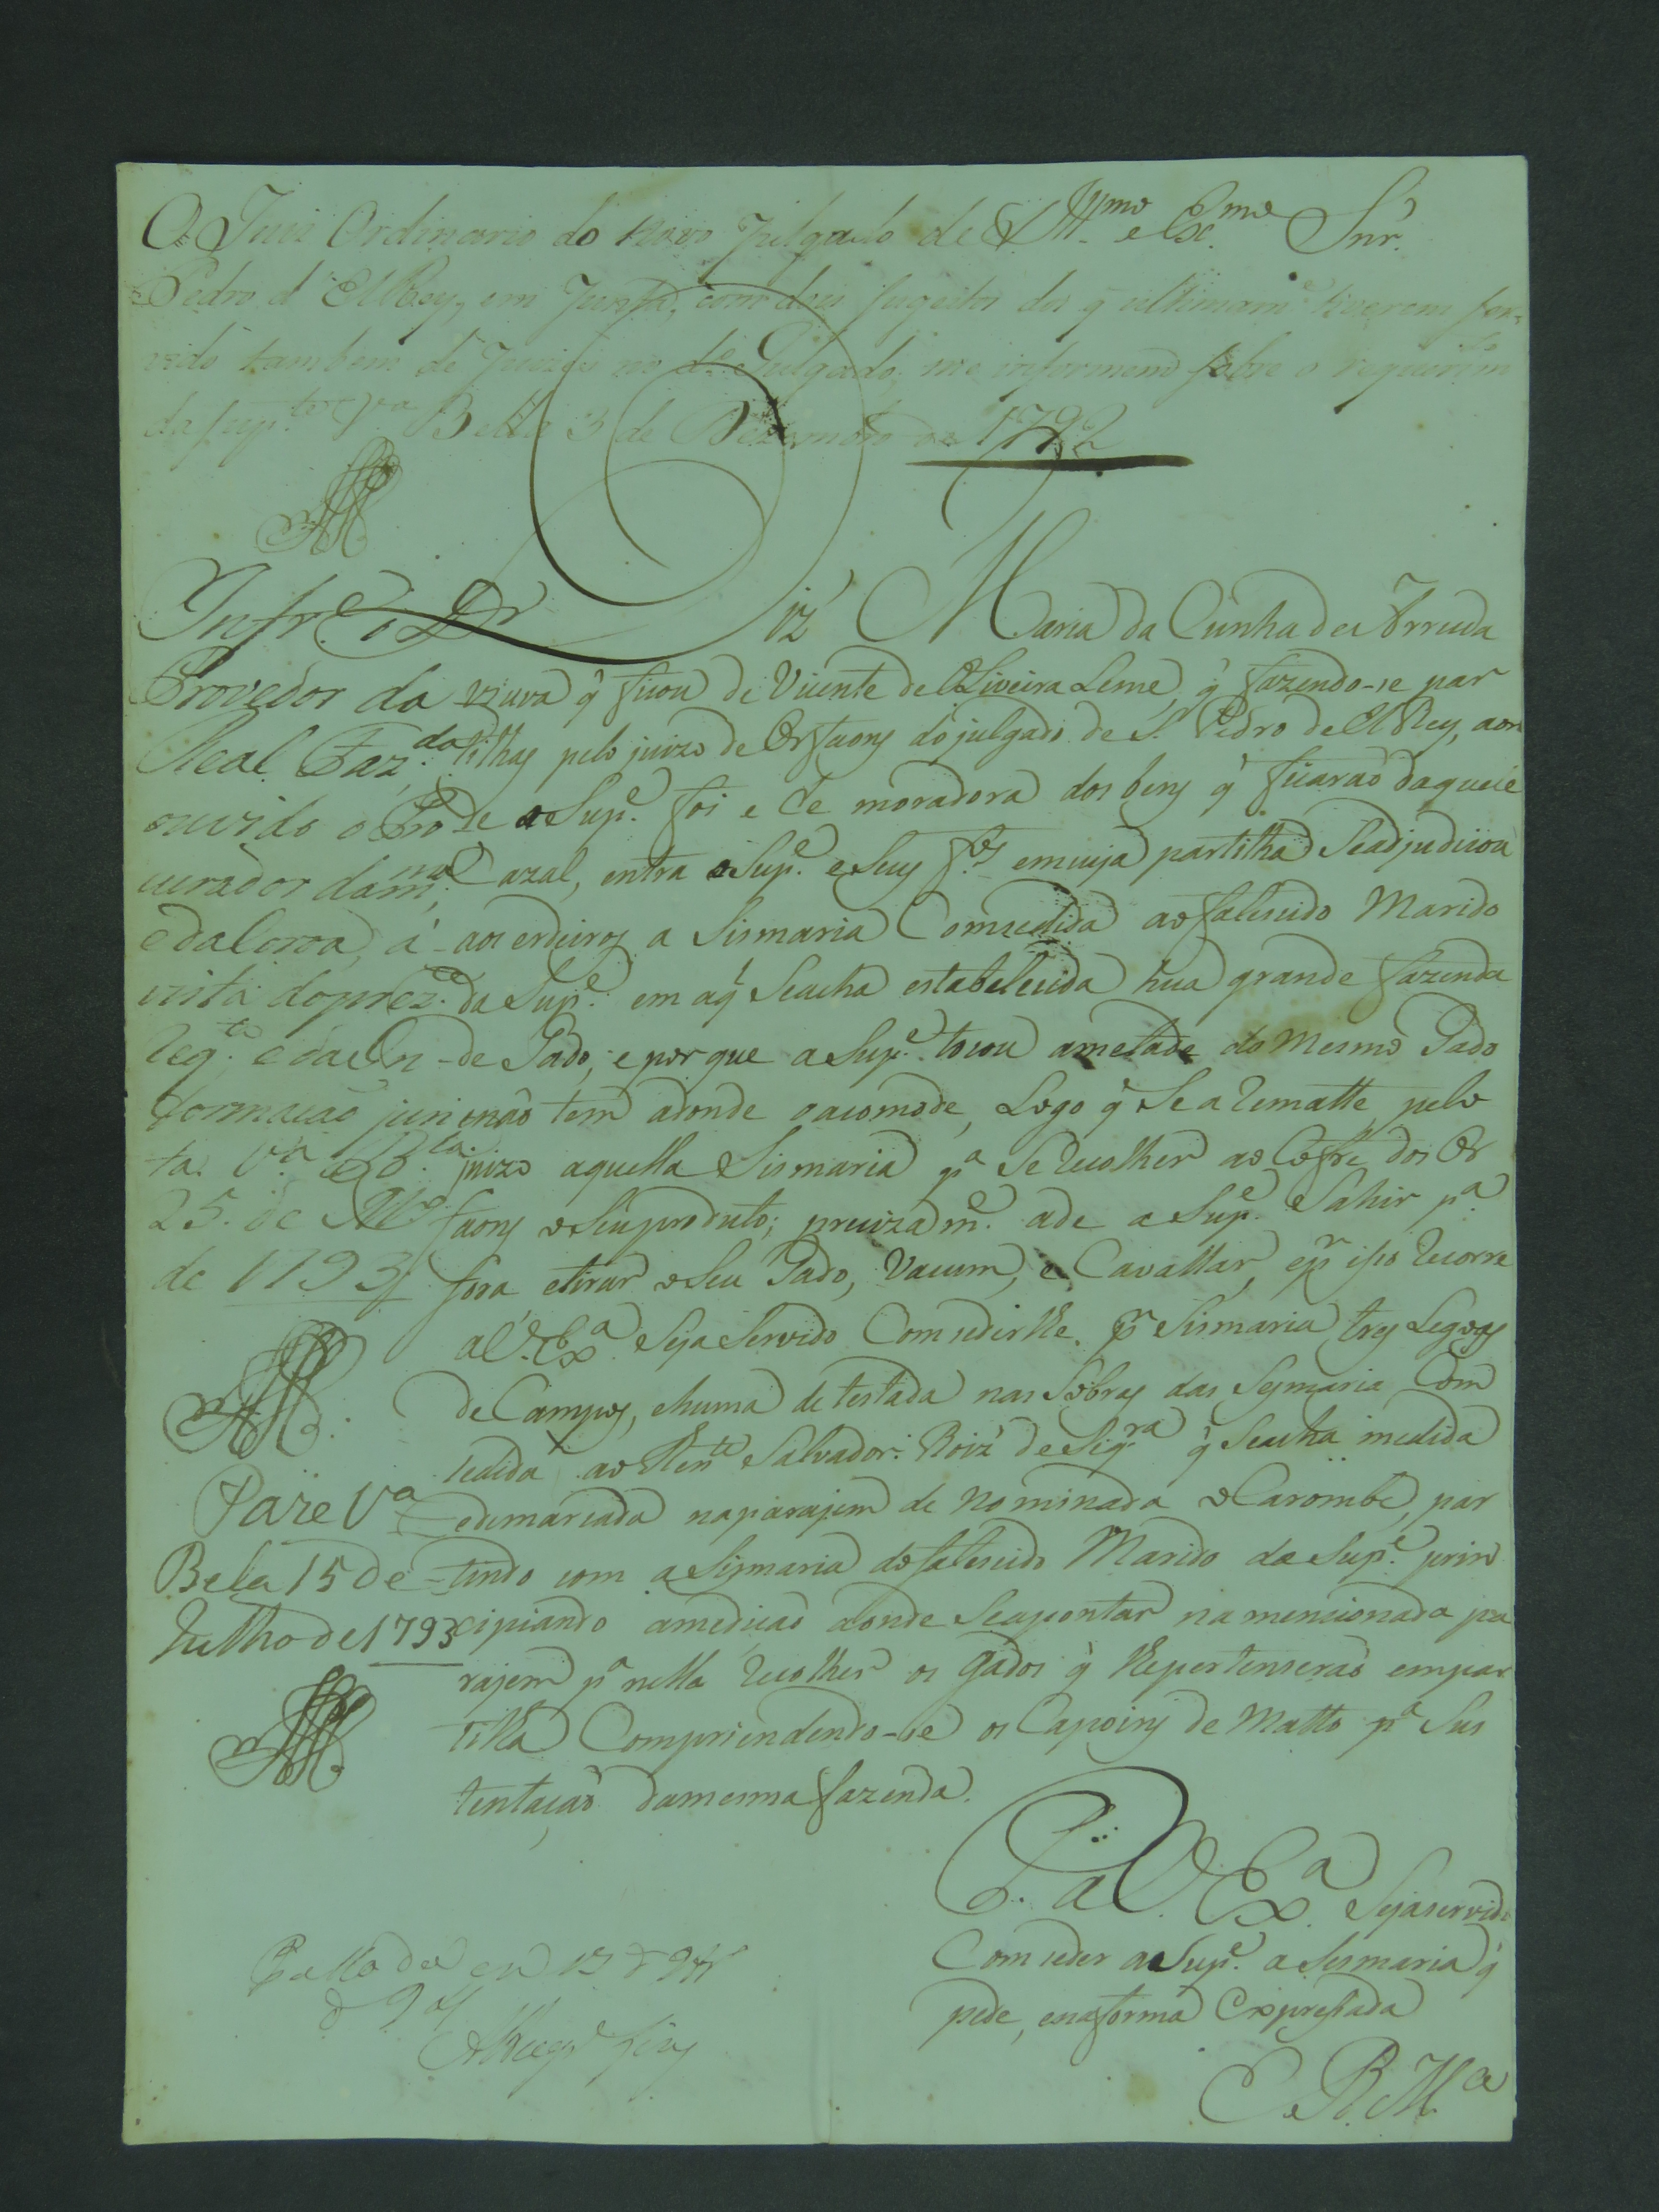 O Juiz Ordinario do novo Julgado de S.
Illmo e Exmo Snr.
Pedro d'ElRey, em Junta, com dois sugeitos dos q ultimamte tiverem ser-
vido tambem de Juizes no do Julgado, me informem sobre o requerimto
da supte Va Bella 3 de Dezembro de 1792
Infre o Dr
Provedor da
Real Fazda
ouvido o Pro
curador damma
e da Coroa, á
vista doprezte
reqto e da In
formação jun
ta. Va Ba
25. de
de 1793
Páse Va
Bela 15 de
Julho de 1793
Diz Maria da Cunha de Arruda
viuva q ficou de Vicente de Oliveira Leme, q fazendo-se par
tilhas pelo juizo de Orfaons do julgado de S. Pedro de El Rey, aon
de a Supe foi e he moradora dos bens q ficarão daquele
Cazal, entra a Supe e Seus fos em cuja partilha Seadjudicou
aos erdeiros a Sismaria Comsedida ao falescido Marido
da Supe em aq Seacha estabelecida hua grande fazenda
de Gado, e por que a Supe tocou ametade do Mesmo Gado
enão tem adonde o acomode, Logo q Se a Rematte pelo
juizo aquella Sismaria pa Se Recolher ao Cofre dos Or
faons o Seu produto; precizadme ade a Supe Sahir pa
fora etirar o Seu Gado, Vacum, e Cavallar, epr iso Recorre
a V. Exa Seja Servido Comsedirlhe pr Sismaria tres Legoas
de Campos, ehuma de testada nas Sobras das Sesmaria Com
sedida ao Tente Salvador Roiz de Siqra q Seacha medida
edemarcada naparajem de nominada o Carombe, par
tindo com a Sismaria do falescido Marido da Supe prin
cipiando amedição donde Seapontar na mencionada pa
rajem pa nella Recolher os Gados q lhepertenserão empar
tilha Compriendendo-se os Capoins de Matto pa Sus
tentação damesma fazenda.
P. a V. Exa Sejaservido
Comseder a Supe a Sesmaria q
pede, enaforma Expresada
E. R. Ma